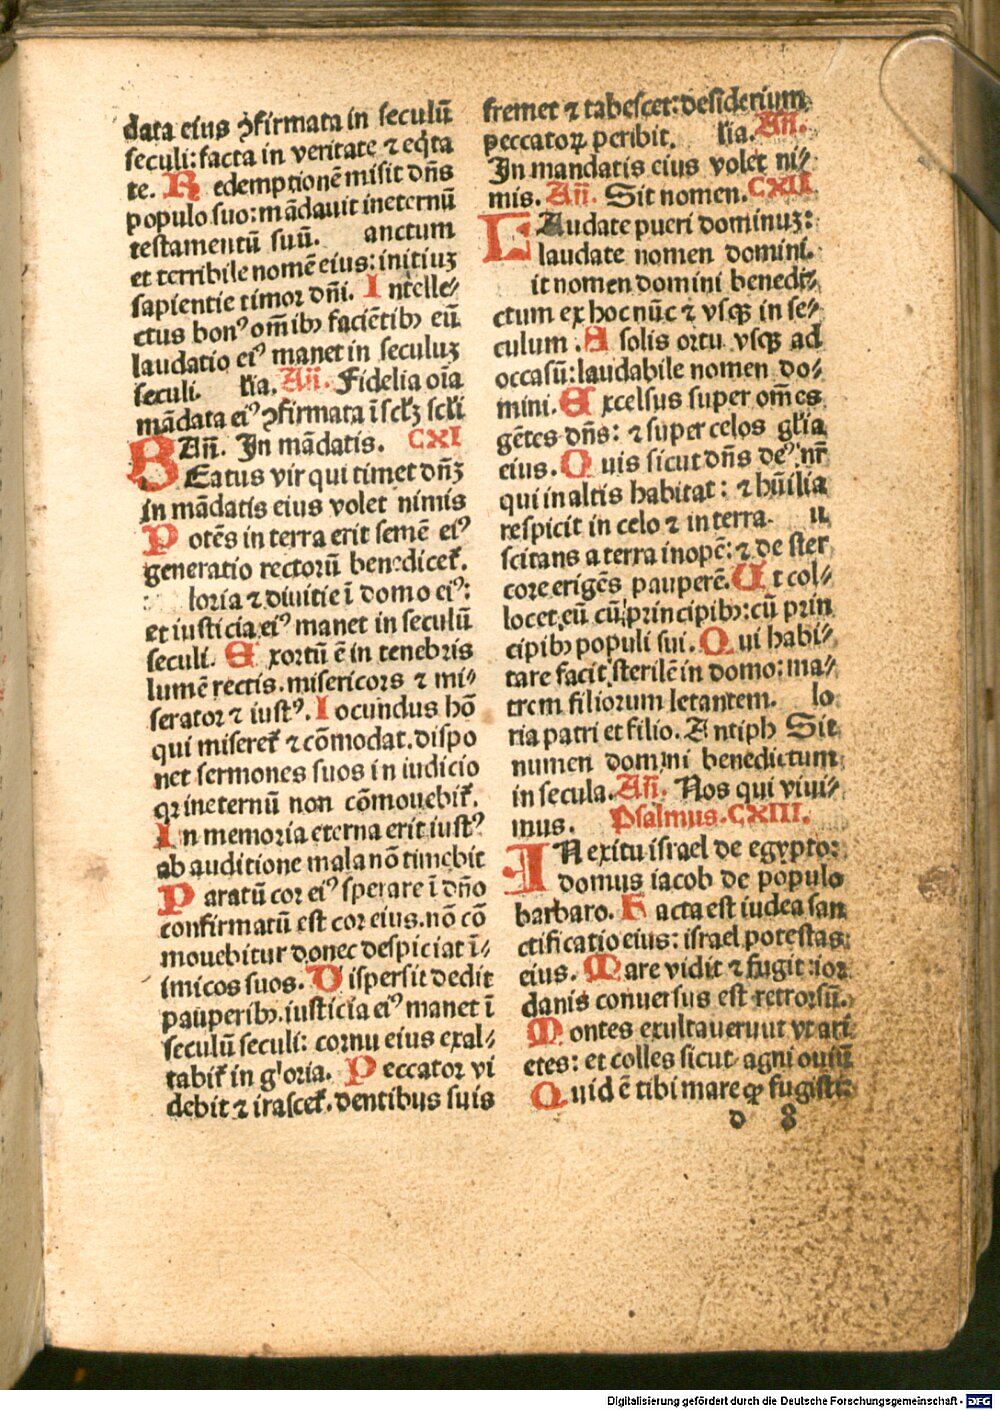 data eius ꝯfirmata in seculū
seculi: facta in veritate ⁊ eq̇ta
te. R edemptionē misit dn̄s
populo suo: mādauit ineternū
testamentū suū. anctum
et terribile nomē eius: initiuꝫ
sapientie timor dn̄i. I ntelle⸗
ctus bonꝰ om̄ibꝫ faciētibꝫ eū
laudatio eiꝰ manet in seculuꝫ
seculi. lia. Añ. Fidelia oīa
mādata eiꝰ ꝯfirmata ī sclꝫ scli
Añ. In mādatis. CXI
BEatus vir qui timet dn̄ꝫ
in mādatis eius volet nimis
P otēs in terra erit semē eiꝰ
generatio rectorū benedicet̄.
loria ⁊ diuitie ī domo eiꝰ:
et iusticia eiꝰ manet in seculū
seculi. E xortū ē in tenebris
lumē rectis. misericors ⁊ mi⸗
serator ⁊ iustꝰ. I ocundus hō
qui miseret̄ ⁊ cōmodat. dispo
net sermones suos in iudicio
qꝛ ineternū non cōmouebit̄.
I n memoria eterna erit iustꝰ
ab auditione mala nō timebit
P aratū cor eiꝰ sperare ī dn̄o
confirmatū est cor eius. nō cō
mouebitur donec despiciat ī⸗
imicos suos. D ispersit dedit
pauperibꝫ. iusticia eiꝰ manet ī
seculū seculi: cornu eius exal⸗
tabit̄ in gloria. P eccator vi
debit ⁊ irascet̄. dentibus suis
fremet ⁊ tabescet: desiderium
peccatoꝝ peribit. lia. Añ.
In mandatis eius volet ni⸗
mis. Añ. Sit nomen. CXII
LAudate pueri dominuꝫ:
laudate nomen domini.
it nomen domini benedi⸗
ctum ex hoc nūc ⁊ vsqꝫ in se⸗
culum. A solis ortu vsqꝫ ad
occasū: laudabile nomen do⸗
mini. E xcelsus super om̄es
gētes dn̄s: ⁊ super celos gl̄ia
eius. Q uis sicut dn̄s deꝰ nr̄
qui in altis habitat: ⁊ hūilia
respicit in celo ⁊ in terra. u
scitans a terra inopē: ⁊ de ster
core erigēs pauperē. U t col⸗
locet eū cū principibꝫ: cū prin
cipibꝫ populi sui. Q ui habi⸗
tare facit sterilē in domo: ma⸗
trem filiorum letantem. lo
ria patri et filio. Antiph Sit
numen domini benedictum
in secula. Añ. Nos qui viui⸗
mus. Psalmus. CXIII.
IN exitu israel de egypto:
domus iacob de populo
barbaro. F acta est iudea san
ctificatio eius: israel potestas
eius. M are vidit ⁊ fugit: ior
danis conuersus est retrorsū.
M ontes exultauerunt vt ari
etes: et colles sicut agni ouiū
Q uid ē tibi mare ꝙ fugisti:
d 8
Digitalisierung gefördert durch die Deutsche Forschungsgemeinschaft - DFG